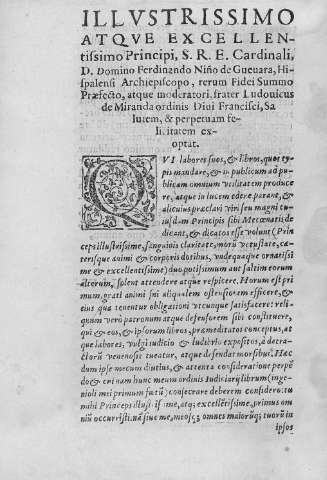 ILLVSTRISSIMO
ATQVE EXCELLEN-
tissimo Principi, S. R. E. Cardinali,
D. Domino Ferdinando Niño de Gueuara, Hi-
spalensi Archiepiscopo, rerum Fidei Summo
Præfecto, atque moderatori. frater Ludouicus
de Miranda ordinis Diui Francisci, Sa
lutem, & perpetuam fe-
licitatem ex-
optat.
QVI labores suos, & libros, quos ty-
pis mandare, & in publicum ad pu-
blicam omnium vtilitatem produce
re, atque in lucem edere parant, &
alicuius præclari viri seu magni tu-
iusdam Principis sibi Mecœnatis de
dicant, & dicatos esse volunt (Prin
ceps illustrissime, sanguinis claritate, morū vetustate, cæ-
terisque animi & corporis dotibus, vndequaque ornatissi
me & excellentissime) duo potissimum aut saltim eorum
alterum, solent attendere atque respicere. Horum est pri
mum, grati animi sui aliqualem ostensionem efficere, &
eius qua tenentur obligationi vtcunque satisfacere: reli-
quum verò patronum atque defensorem sibi constituere,
qui & eos, & ipsorum libros, præmeditatos conceptus, at-
que labores, vulgi iudicio & ludibrio expositos, à detra-
ctorū venenosis tueatur, atque defendat morsibus. Hæc
dum ipse mecum diutius, & attenta consideratione perpē
do, & cui nam hunc meum ordinis Iudiciarij librum (inge-
nioli mei primum fœtū) consecrare deberem considero: tu
mihi Princeps illustrissime, atq; excellētissime, primus om
niū occurristi. nā siue me, meosq; omnes maiorūq; tuorū in
ipsos